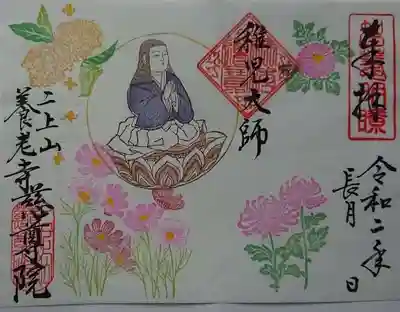 奉拝
令和二年
長月 日
稚児大師
二上山
養老寺慈尊院